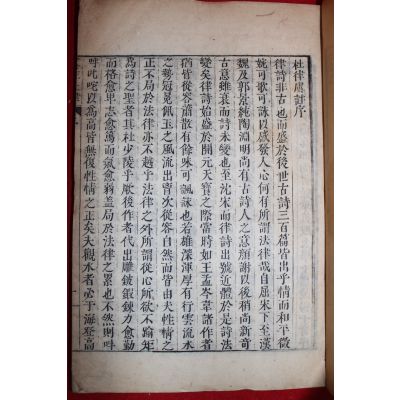 杜律虞註序
律詩非古也而盛於後世古詩三百篇皆出乎情而和平微
婉可歌可詠以感發人心何有所謂法律哉自屈宋下至漢
魏及郭景純陶淵明尚有古詩人之意顔謝以後稍尚新奇
古意雖衰而詩未變也至沈宋而律詩出號近體於是詩法
變矣律詩始盛於開元天寶之際當時如王孟岑韋諸作者
猶皆從容蕭散有餘味可諷詠也若雄深渾厚有行雲流水
之勢冠冕佩玉之風流出胷次從容自然而皆由夫性情之
正不局於法律亦不越乎法律之外所謂從心所欲不踰矩
為詩之聖者其杜少陵乎厥後作者代出雕鏤鍛鍊力愈勤
而格愈卑志愈篤而氣愈弱盖局於法律之累也不然則
呼叱咤以為高皆無復性情之正矣夫觀水者必于海登高